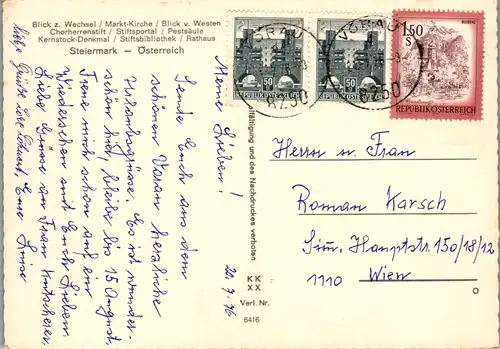 Blick z. Wechsel / Markt-Kirche / Blick v. Westen
Chorherrenstift / Stiftsportal / Pestsäule
Kernstock-Denkmal / Stiftsbibliothek / Rathaus
Steiermark — Österreich
Meine Lieben!
20. 7. 76
Sende Euch aus dem
schönen Vorau herzliche
Urlaubsgrüsse. Es ist wunder-
schön hier, bleibe bis 15 August,
Freue mich schon auf ein
Wiedersehen mit Euch Lieben.
Liebe Grüsse an Frau
Eure Luise
VORAU
8250
50
REPUBLIK ÖSTERREICH
50
REPUBLIK ÖSTERREICH
VORAU
8250
1.50
S
REPUBLIK ÖSTERREICH
und des Nachdruckes verboten
KK
XX
Verl. Nr.
6416
Herrn u. Frau
Roman Karsch
Sim. Hauptstr. 150/18/12
1110 Wien